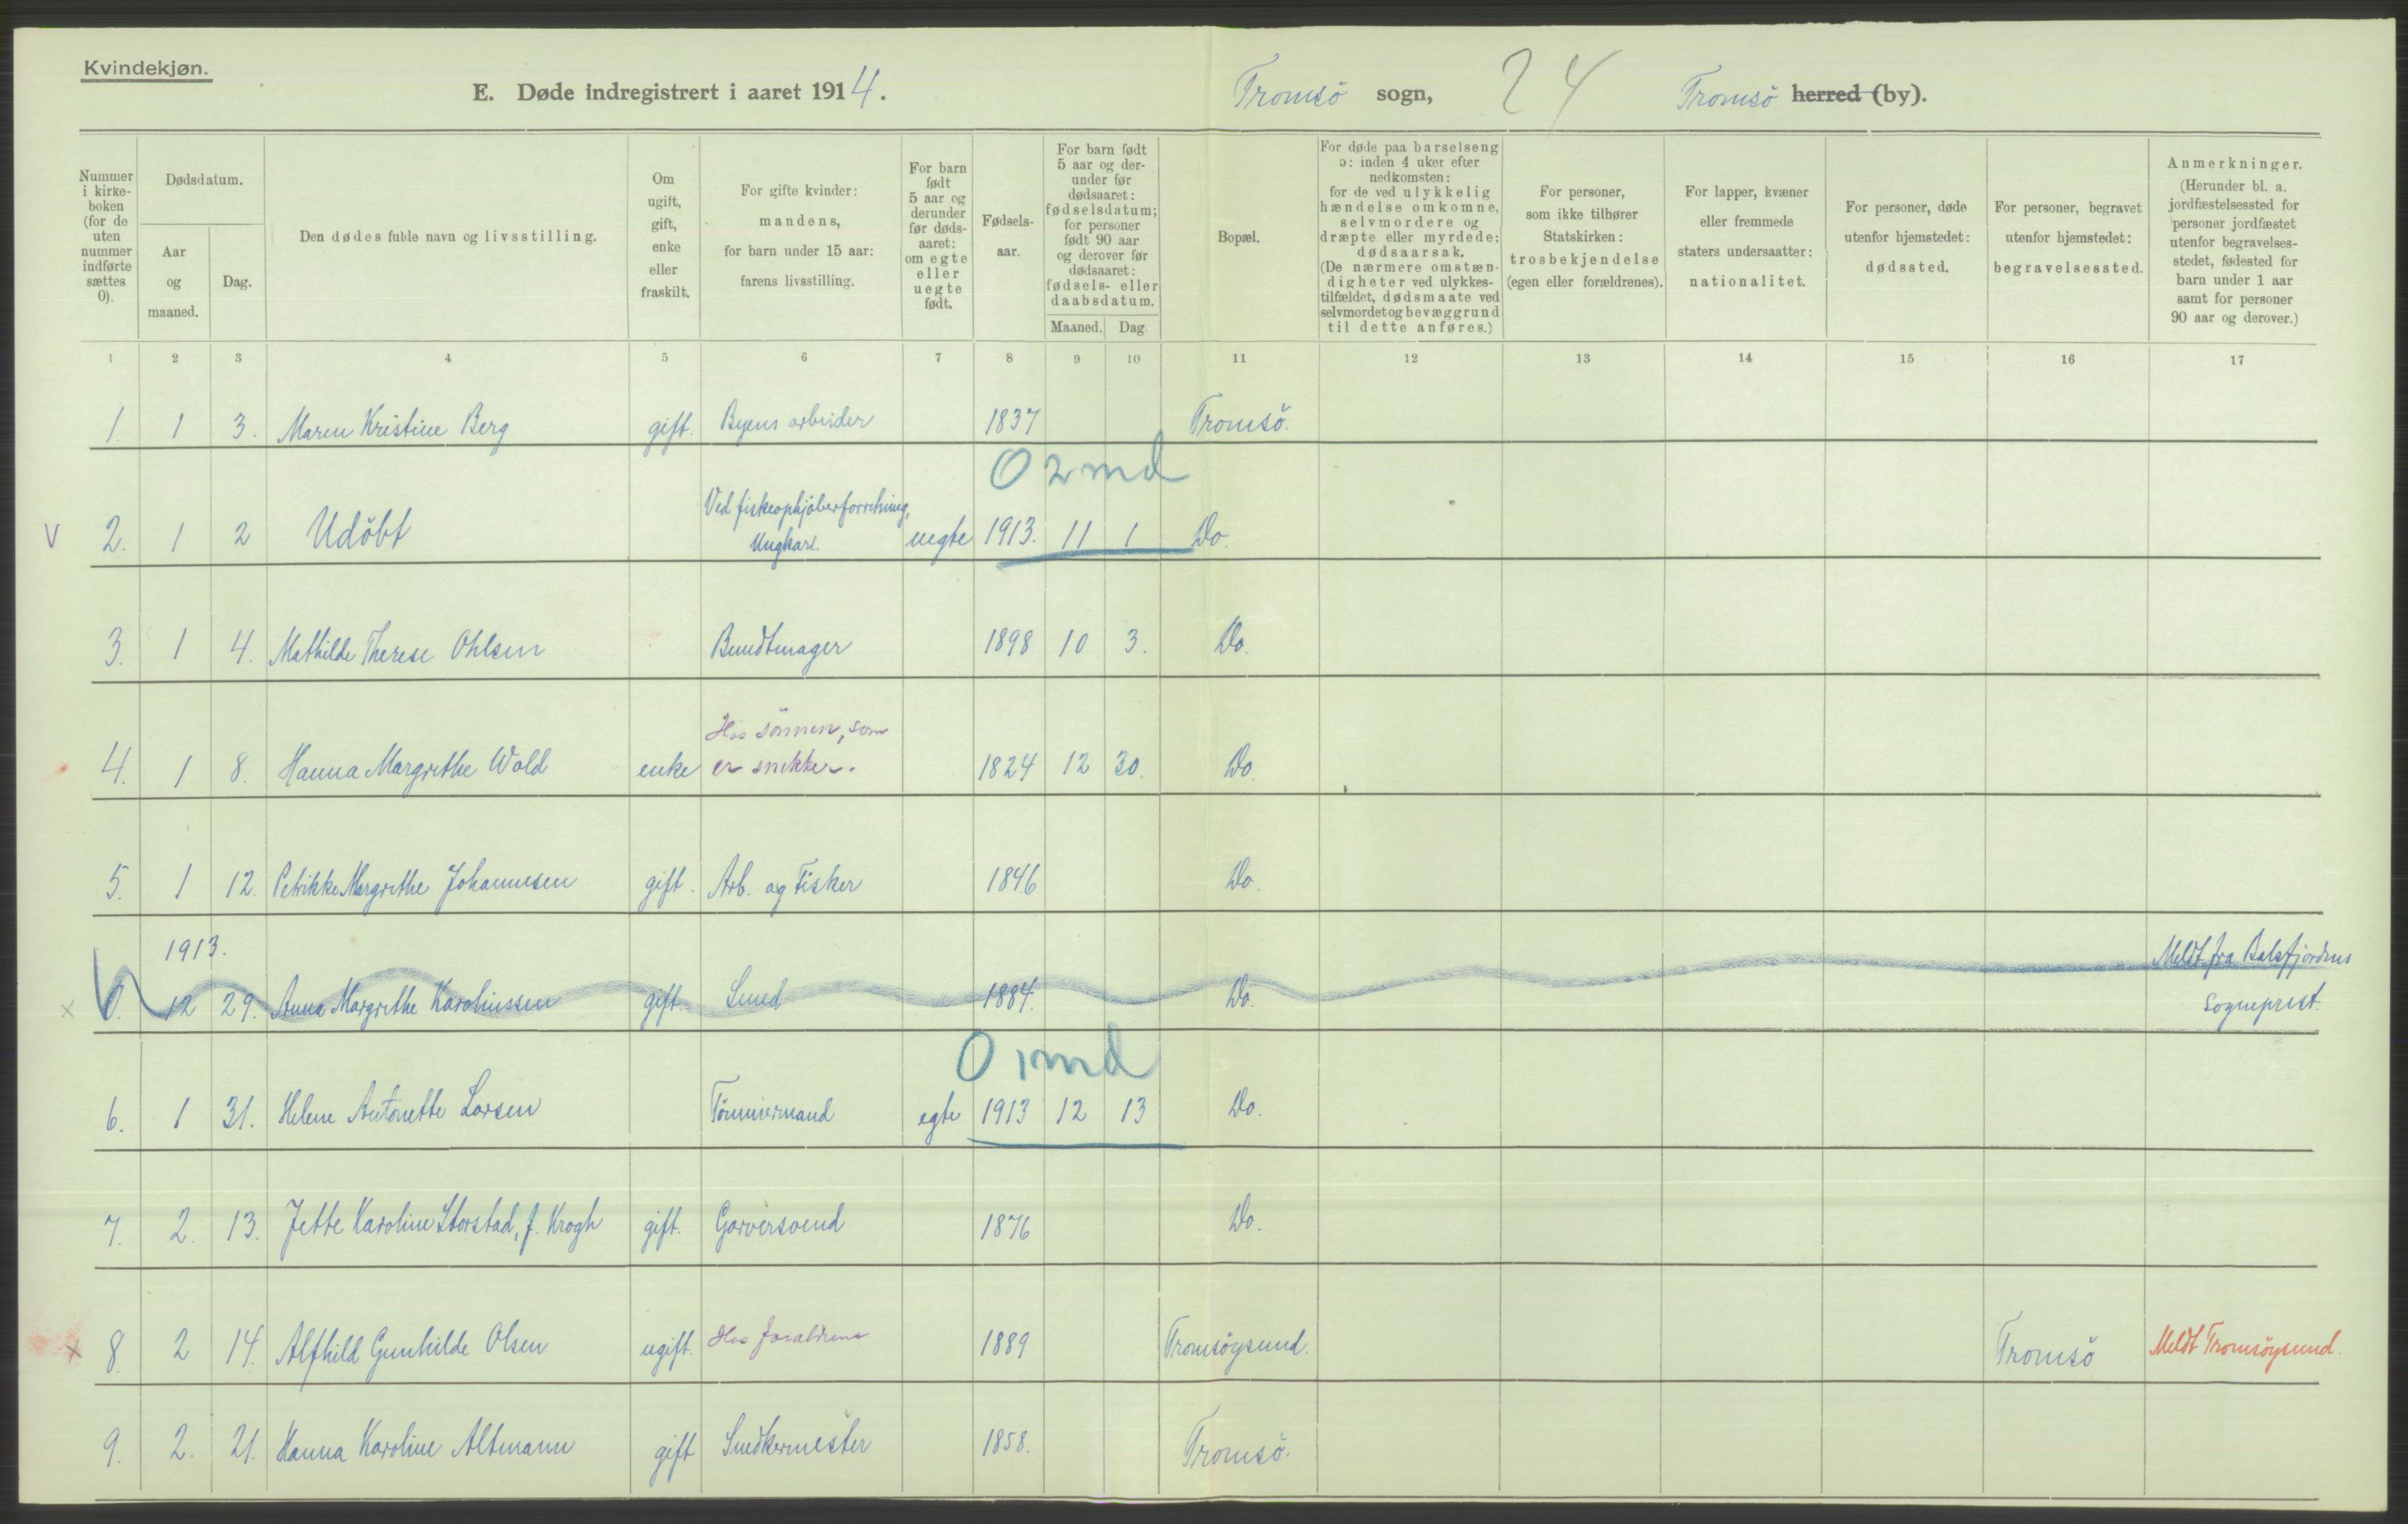 Kvindekjøn.
E. Døde indregistrert i aaret 1914. Tromsö sogn, 24 Tromsö herred (by).
Nummer i kirke-boken (for de uten nummer indførte sættes 0).
Dødsdatum.
Aar og maaned.
Dag.
Den dødes fulde navn og livsstilling.
Om ugift, gift, enke eller fraskilt.
For gifte kvinder: mandens, for barn under 15 aar: farens livsstilling.
For barn født 5 aar og derunder før døds-aaret: om egte eller uegte født.
Fødsels-aar.
For barn født 5 aar og der-under før dødsaaret: fødselsdatum; for personer født 90 aar og derover før dødsaaret: fødsels- eller daabsdatum.
Maaned. Dag.
Bopæl.
For døde paa barselseng ɔ: inden 4 uker efter nedkomsten: for de ved ulykkelig hændelse omkomne, selvmordere og dræpte eller myrdede: dødsaarsak. (De nærmere omstæn-digheter ved ulykkes-tilfældet, dødsmaate ved selvmordet og bevæggrund til dette anføres.)
For personer, som ikke tilhører Statskirken: trosbekjendelse (egen eller forældrenes).
For lapper, kvæner eller fremmede staters undersaatter: nationalitet.
For personer, døde utenfor hjemstedet: dødssted.
For personer, begravet utenfor hjemstedet: begravelsessted.
Anmerkninger. (Herunder bl. a. jordfæstelsessted for personer jordfæstet utenfor begravelses-stedet, fødested for barn under 1 aar samt for personer 90 aar og derover.)
1 2 3 4 5 6 7 8 9 10 11 12 13 14 15 16 17
1. 1 3. Maren Kristine Berg gift. Byens arbeider 1837 Tromsö.
0 2 md
Ved fiskeophjöberforretning,
V 2. 1 2 Udöbt Ungkarl. uegte 1913. 11 1 Do.
3. 1 4. Mathilde Therese Ohlsen Bundtmager 1898 10 3. Do.
Hos sönnen, som
4. 1 8. Hanna Margrethe Wold enke er snekker. 1824 12 30. Do.
5. 1 12. Petrikke Margrethe Johannesen gift. Arb. og Fisker 1846 Do.
1913. Meldt fra Balsfjordens
x 0. 12 29. Anna Margrethe Karolinssen gift. Smed 1884. Do. Sogneprest.
0 1 md
6. 1 31. Helene Antonette Larsen Tömmermand egte 1913 12 13 Do.
7. 2. 13. Jette Karoline Storstad, f. Krogh gift. Garversvend 1876 Do.
x 8. 2 14. Alfhild Gunhilde Olsen ugift. Hos forældrene 1889 Tromsöysund. Tromsö Meldt Tromsöysund.
9. 2. 21. Hanna Karoline Altmann gift Snedkermester 1858. Tromsö.